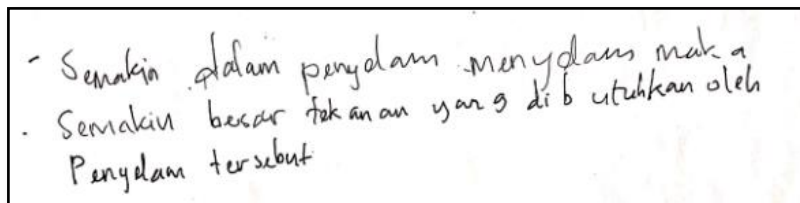 - Semakin dalam penyelam menyelam maka
. Semakin besar tekanan yang dibutuhkan oleh
Penyelam tersebut